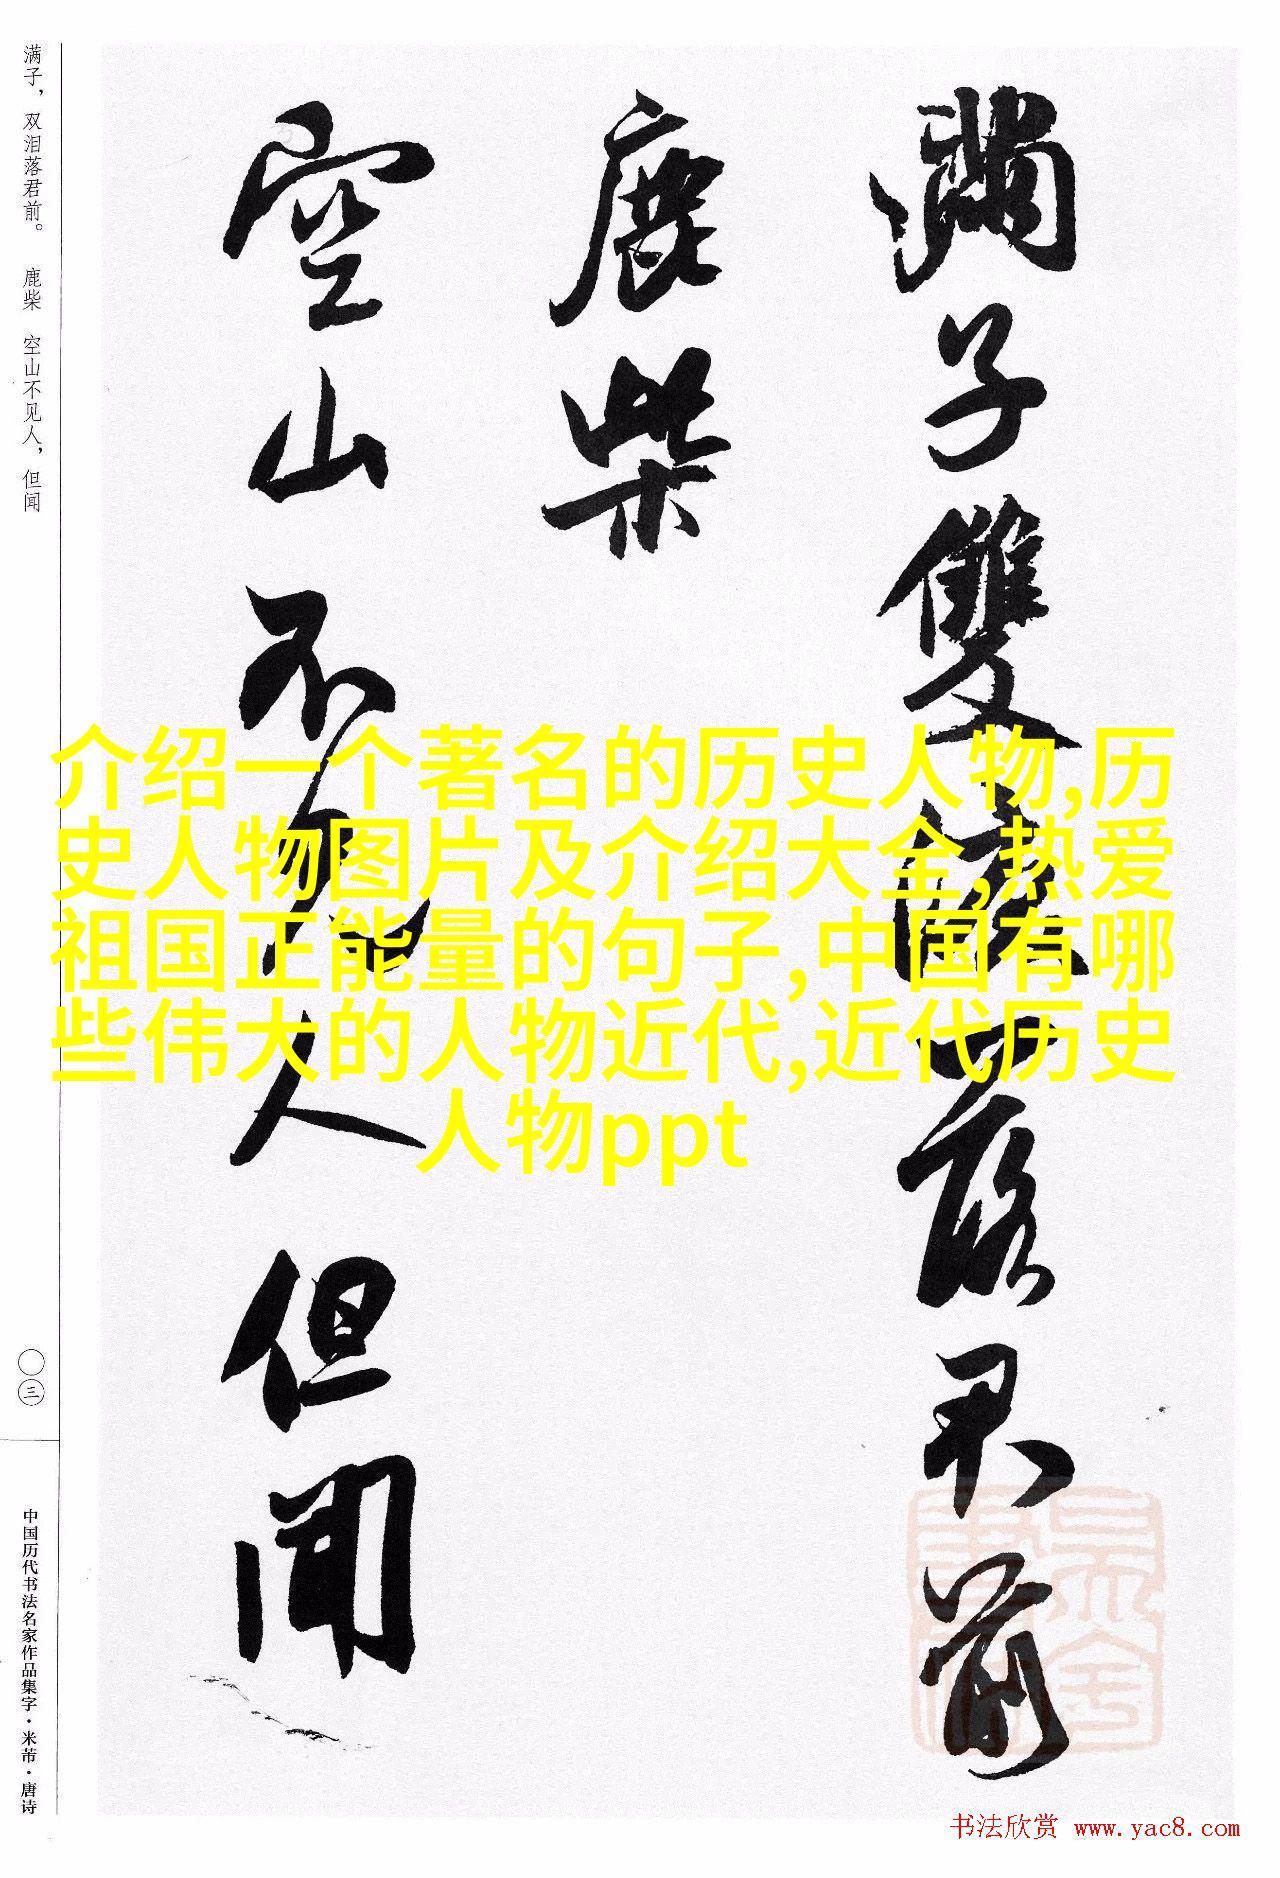 满子，双泪落君前。 鹿柴 空山不见人，但闻
滿子雙淚落君前
鹿柴
空山不見人但聞
介绍一个著名的历史人物,历
史人物图片及介绍大全,热爱
祖国正能量的句子,中国有哪
些伟大的人物近代,近代历史
人物ppt
〇三
中国历代书法名家作品集字·米芾·唐诗
书法欣赏 www.yac8.com